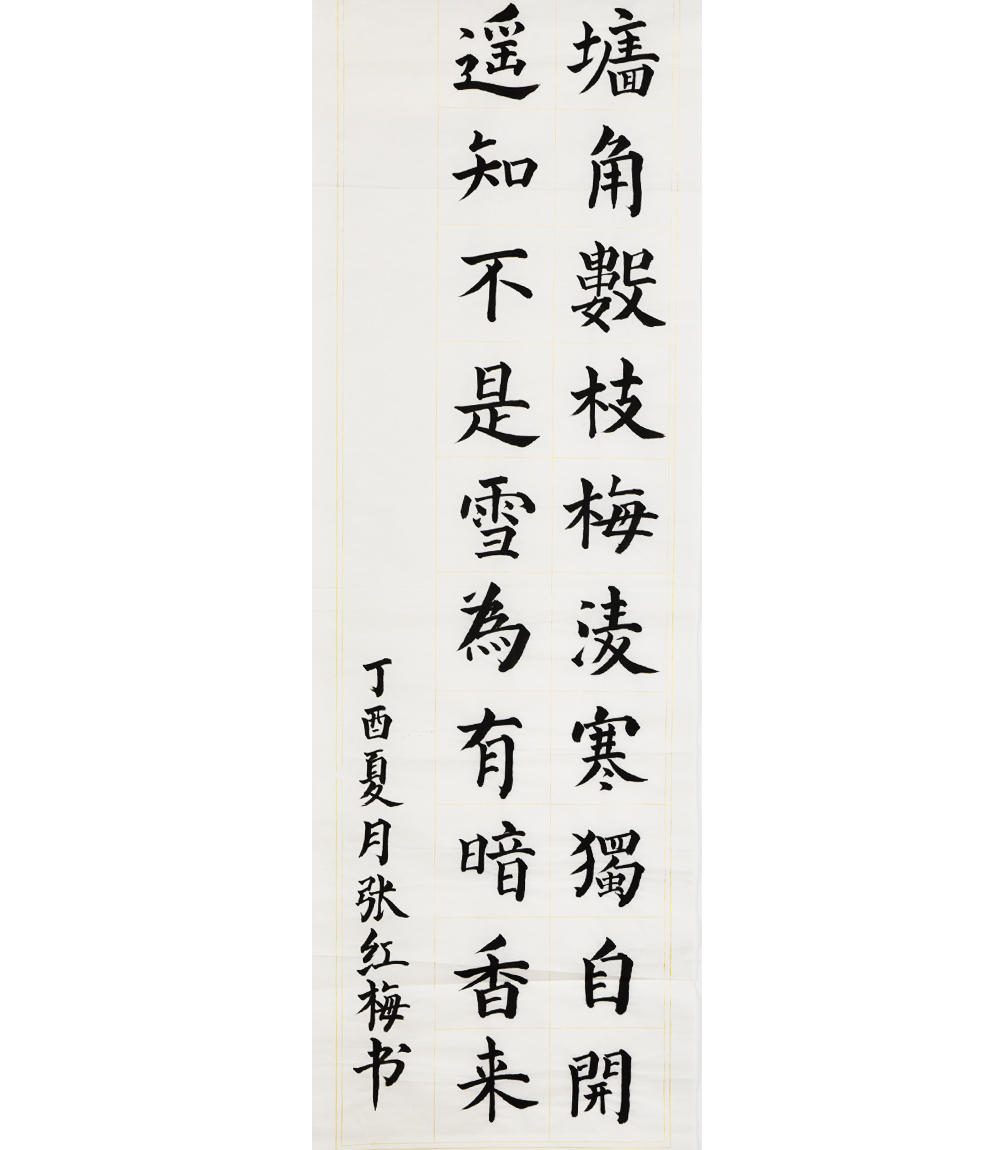 墻角數枝梅淩寒獨自開
遥知不是雪為有暗香来
丁酉夏月张红梅书